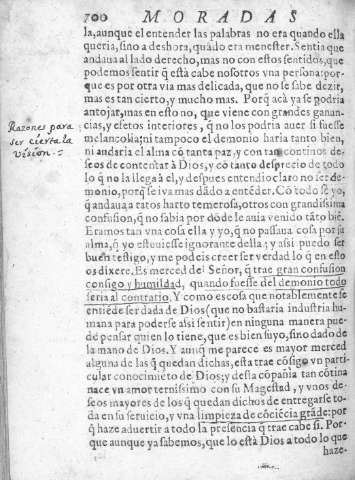 700 MORADAS
la, aunque el entender las palabras no era quando ella
queria, sino a deshora, quãdo era menester. Sentia que
andaua al lado derecho, mas no con estos sentidos, que
podemos sentir q̃ està cabe nosotros vna persona: por-
que es por otra via mas delicada, que no se sabe dezir,
mas es tan cierto, y mucho mas. Porq̃ acà ya se podria
antojar, mas en esto no, que viene con grandes ganan-
cias, y efetos interiores, q̃ no los podria auer si fuesse
melancolia; ni tampoco el demonio haria tanto bien,
ni andaria el alma cõ tanta paz, y con tan continos de-
seos de contentar à Dios, y cõ tanto desprecio de todo
lo q̃ no la llega à el, y despues entendio claro no ser de-
monio, porq̃ se iva mas dãdo a entẽder. Cõ todo se yo,
q̃ andaua a ratos harto temerosa, otros con grandissima
confusion, q̃ no sabia por dõde le auia venido tãto biẽ.
Eramos tan vna cosa ella y yo, q̃ no passaua cosa por su
alma, q̃ yo estouiesse ignorante della; y assi puedo ser
buen testigo, y me podeis creer ser verdad lo q̃ en esto
os dixere. Es merced del Señor, q̃ trae gran confusion
consigo y humildad, quando fuesse del demonio todo
seria al contrario. Y como es cosa que notablemente se
entiẽde ser dada de Dios (que no bastaria industria hu-
mana para poderse assi sentir) en ninguna manera pue-
de pensar quien lo tiene, que es bien suyo, sino dado de
la mano de Dios. Y aunq̃ me parece es mayor merced
alguna de las q̃ quedan dichas, esta trae cõsigo vn parti-
cular conocimiẽto de Dios; y desta cõpañia tan cõtina
nace vn amor ternissimo con su Magestad, y vnos de-
seos mayores de los q̃ quedan dichos de entregarse to-
da en su seruicio, y vna limpieza de cõciẽcia grãde: por
q̃ haze aduertir a todo la presencia q̃ trae cabe si. Por-
que aunque ya sabemos, que lo està Dios a todo lo que
haze-
Razones para
ser cierta la
vision